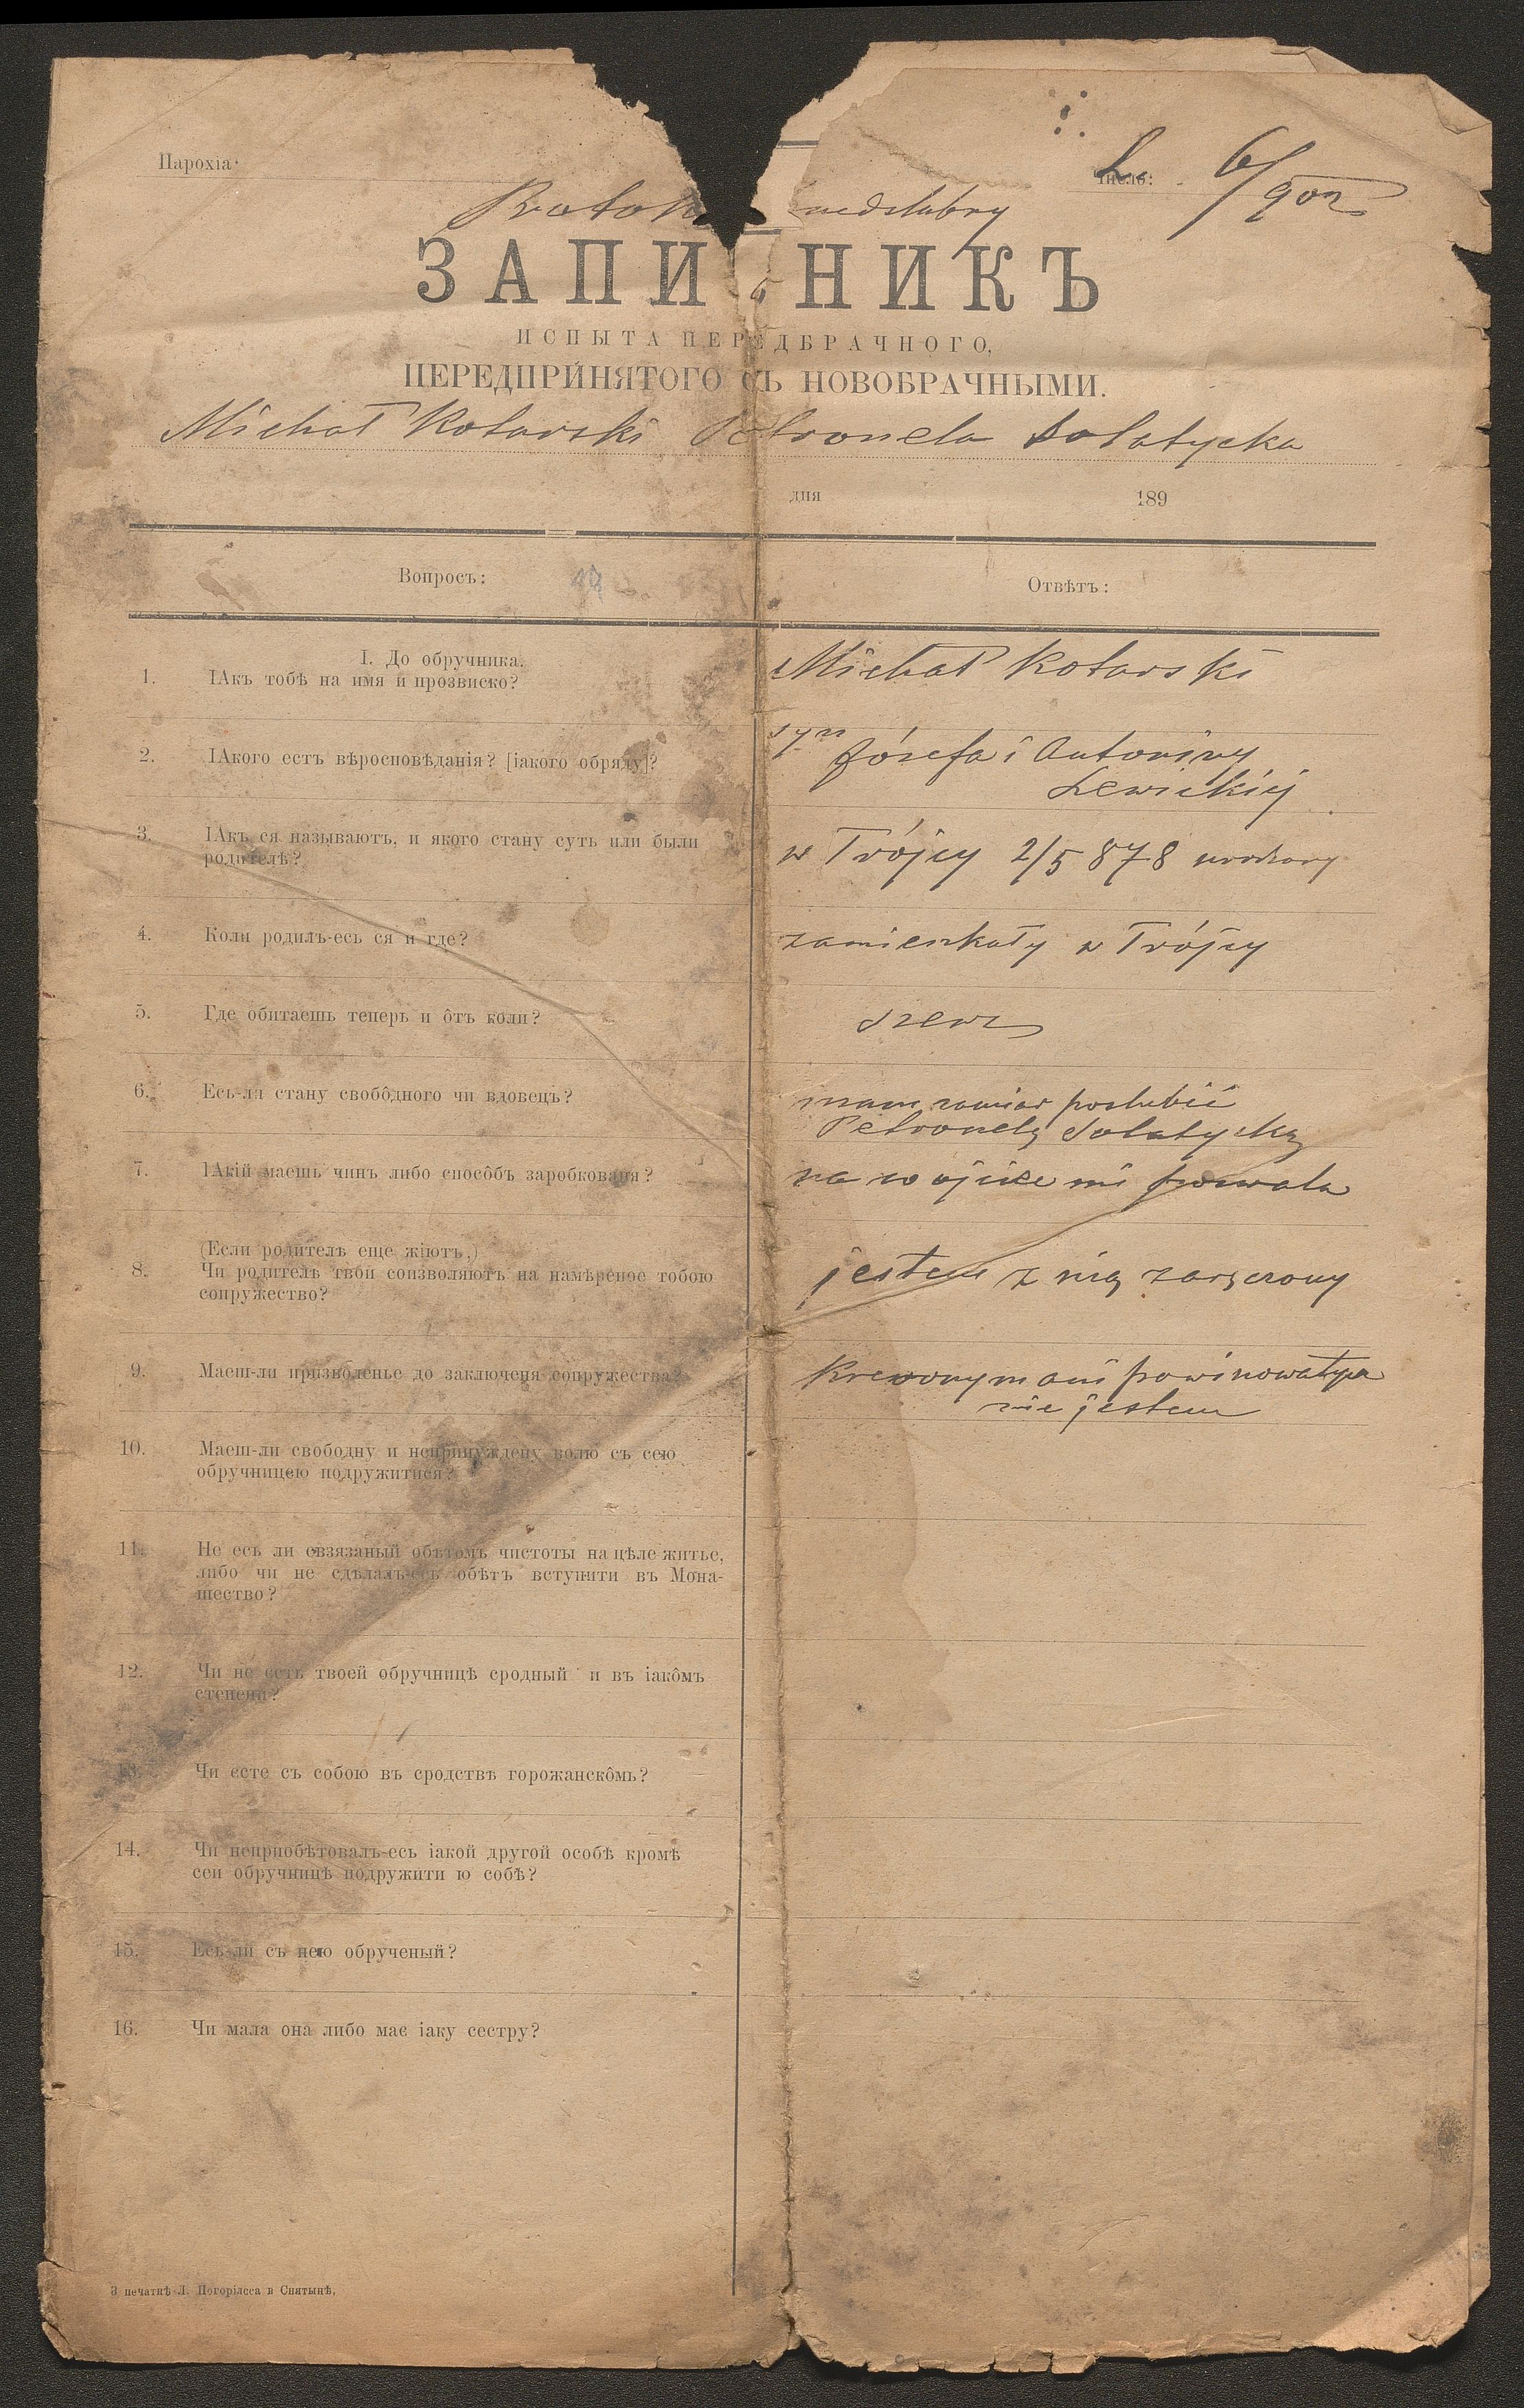 Парохія:
Число:
L. 6/902
Protok nedślubny
ЗАПИСНИКЪ
ИСПЫТА ПЕРЕДБРАЧНОГО,
ПЕРЕДПРИНЯТОГО СЪ НОВОБРАЧНЫМИ.
Michał Kotarski Petronela Sołatycka
дня 189
Вопросъ: Отвѣтъ:
I. До обручника.
1. ІАкъ тобѣ на имя и прозвиско?
Michał Kotarski
2. ІАкого есть вѣросповѣданія? [іакого обряду]?
syn Józefa i Antoniny
Lewickiej
3. ІАкъ ся называютъ, и якого стану суть или были
родителѣ?
w Trójcy 2/5 878 urodzony
4. Коли родилъ-есь ся и где?
zamieszkały w Trójcy
5. Где обитаешь теперь и ôтъ коли?
szewc
6. Есь-ли стану свобôдного чи вдовецъ?
mam zamiar poślubić
Petronelę Sołatycką
7. ІАкій маешь чинъ либо способъ заробкованя?
na wojnie mi
(Если родителѣ еще жіютъ,)
8. Чи родителѣ твои соизволяютъ на намѣреное тобою
сопружество?
jestem z nią zaręczony
9. Маеш-ли призволенье до заключеня сопружества?
Krewnym ani powinowatym
nie jestem
10. Маеш-ли свободну и непринуждену волю съ сею
обручницею подружитися?
11. Не есь ли связязаный обѣтомъ чистоты на цѣле житье,
либо чи не сдѣлалъ-есь обѣтъ вступити въ Мона-
шество?
12. Чи не есть твоей обручницѣ сродный и въ іакôмъ
степени?
13. Чи єсте съ собою въ сродствѣ горожанскôмъ?
14. Чи неприобѣтовалъ-есь іакой другой особѣ кромѣ
сеи обручницѣ подружити ю собѣ?
15. Есь-ли съ нею обрученый?
16. Чи мала она либо має іаку сестру?
З печатнѣ Л. Погорілеса в Снятынѣ.